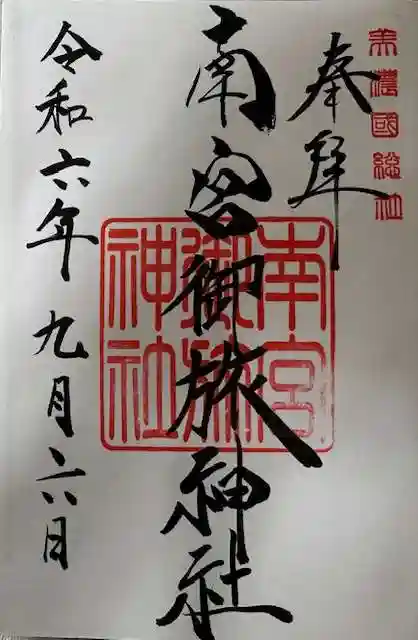 美濃國総社
奉拝
南宮御旅神社
南宮
御旅
神社
令和六年九月六日